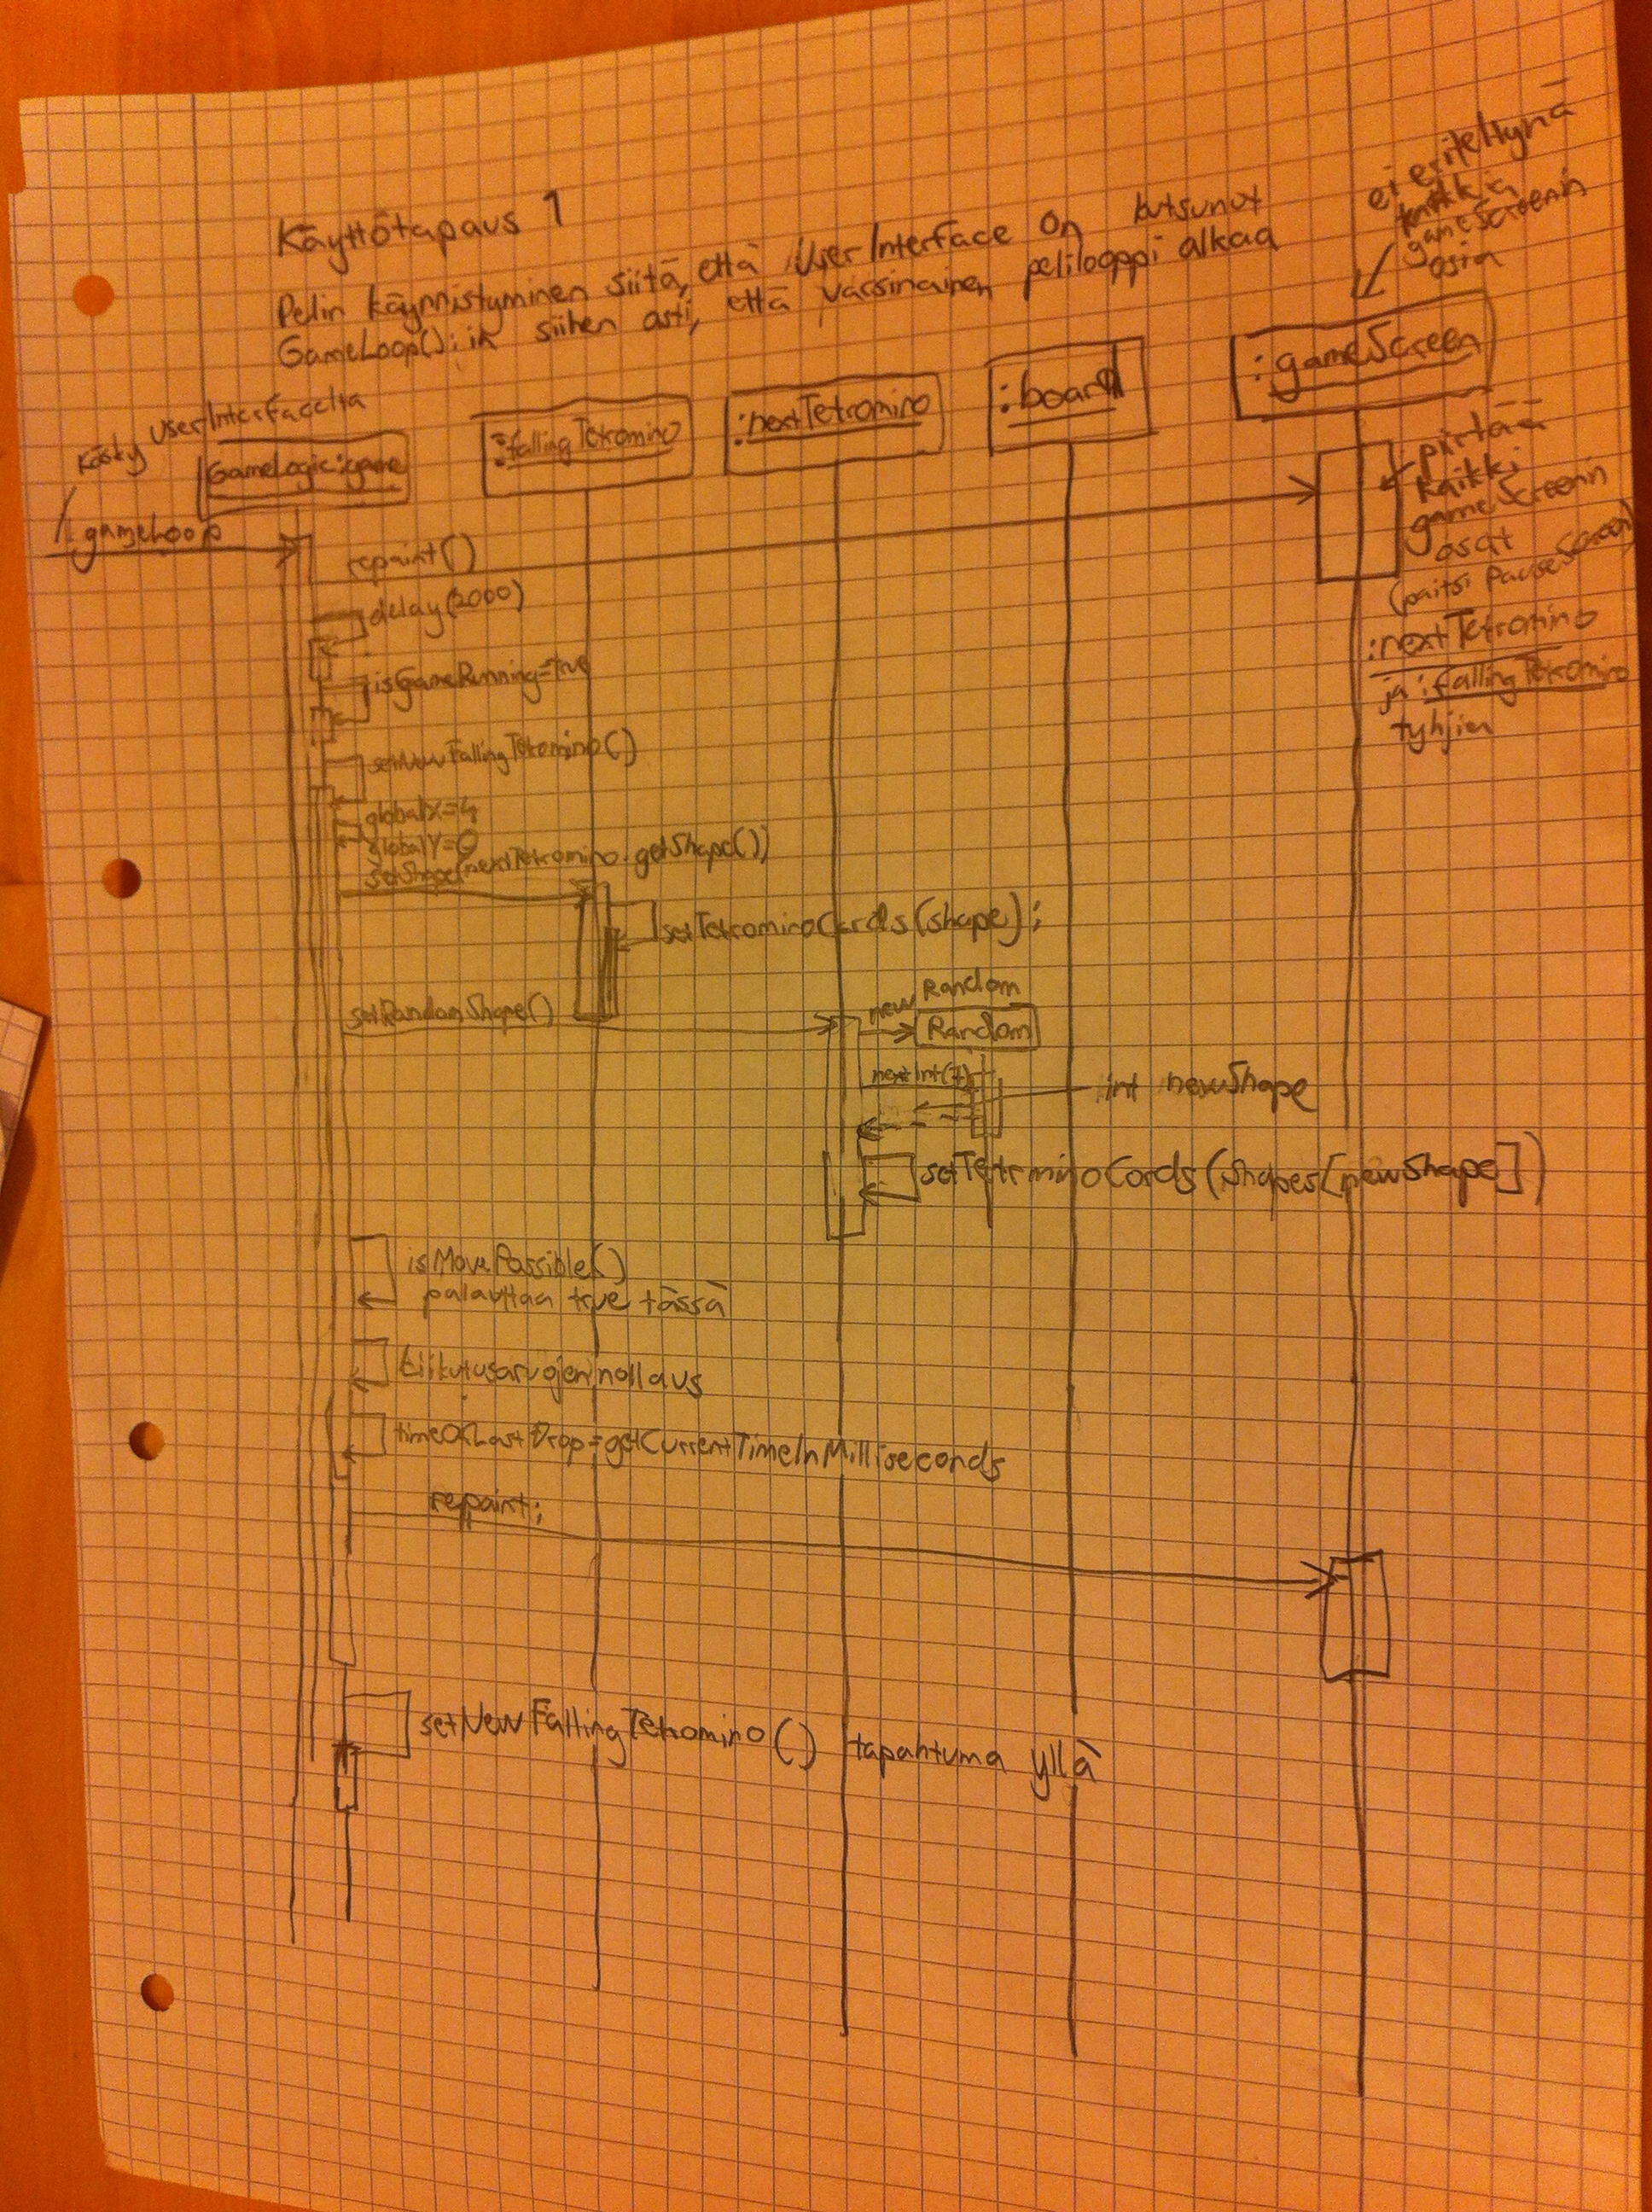 Käyttötapaus 1
Pelin käynnistyminen siitä, että UserInterface on kutsunut
GameLoop():in siihen asti, että varsinainen pelilooppi alkaa
ei eriteltynä
kaikkia
gameScreenin
osia
Käsky userInterfacelta
GameLogic:game
:fallingTetromino
:nextTetromino
:board
:gameScreen
gameLoop
repaint()
piirtää
kaikki
gameScreenin
osat
(paitsi PauseScreen)
:nextTetromino
ja :fallingTetromino
tyhjien
delay(2000)
isGameRunning=true
setNewFallingTetromino()
globalX=4
globalY=0
setShape(nextTetromino.getShape())
setTetrominoCords(shape);
setRandomShape()
new Random
Random
nextInt(7)
int newShape
setTetrminoCords(shapes[newShape])
isMovePossible()
palauttaa true tässä
nollaus
timeOfLastDrop=getCurrentTimeInMilliseconds
repaint;
setNewFallingTetromino() tapahtuma yllä